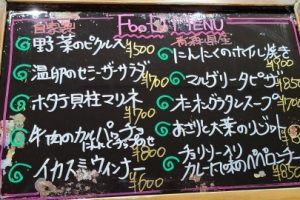 FOOD MENU
自家製
野菜のピクルス ¥500
温卵のシーザーサラダ ¥700
ホタテ貝柱マリネ ¥700
牛肉のカルパッチョ
¥800
イカスミウィンナー ¥600
青森県産
にんにくのホイル焼き ¥900
マルゲリータピザ ¥850
オニオングラタンスープ ¥700
あさりと大葉のリゾット
チョリソー入り
カレー風味のペペロンチーノ ¥850